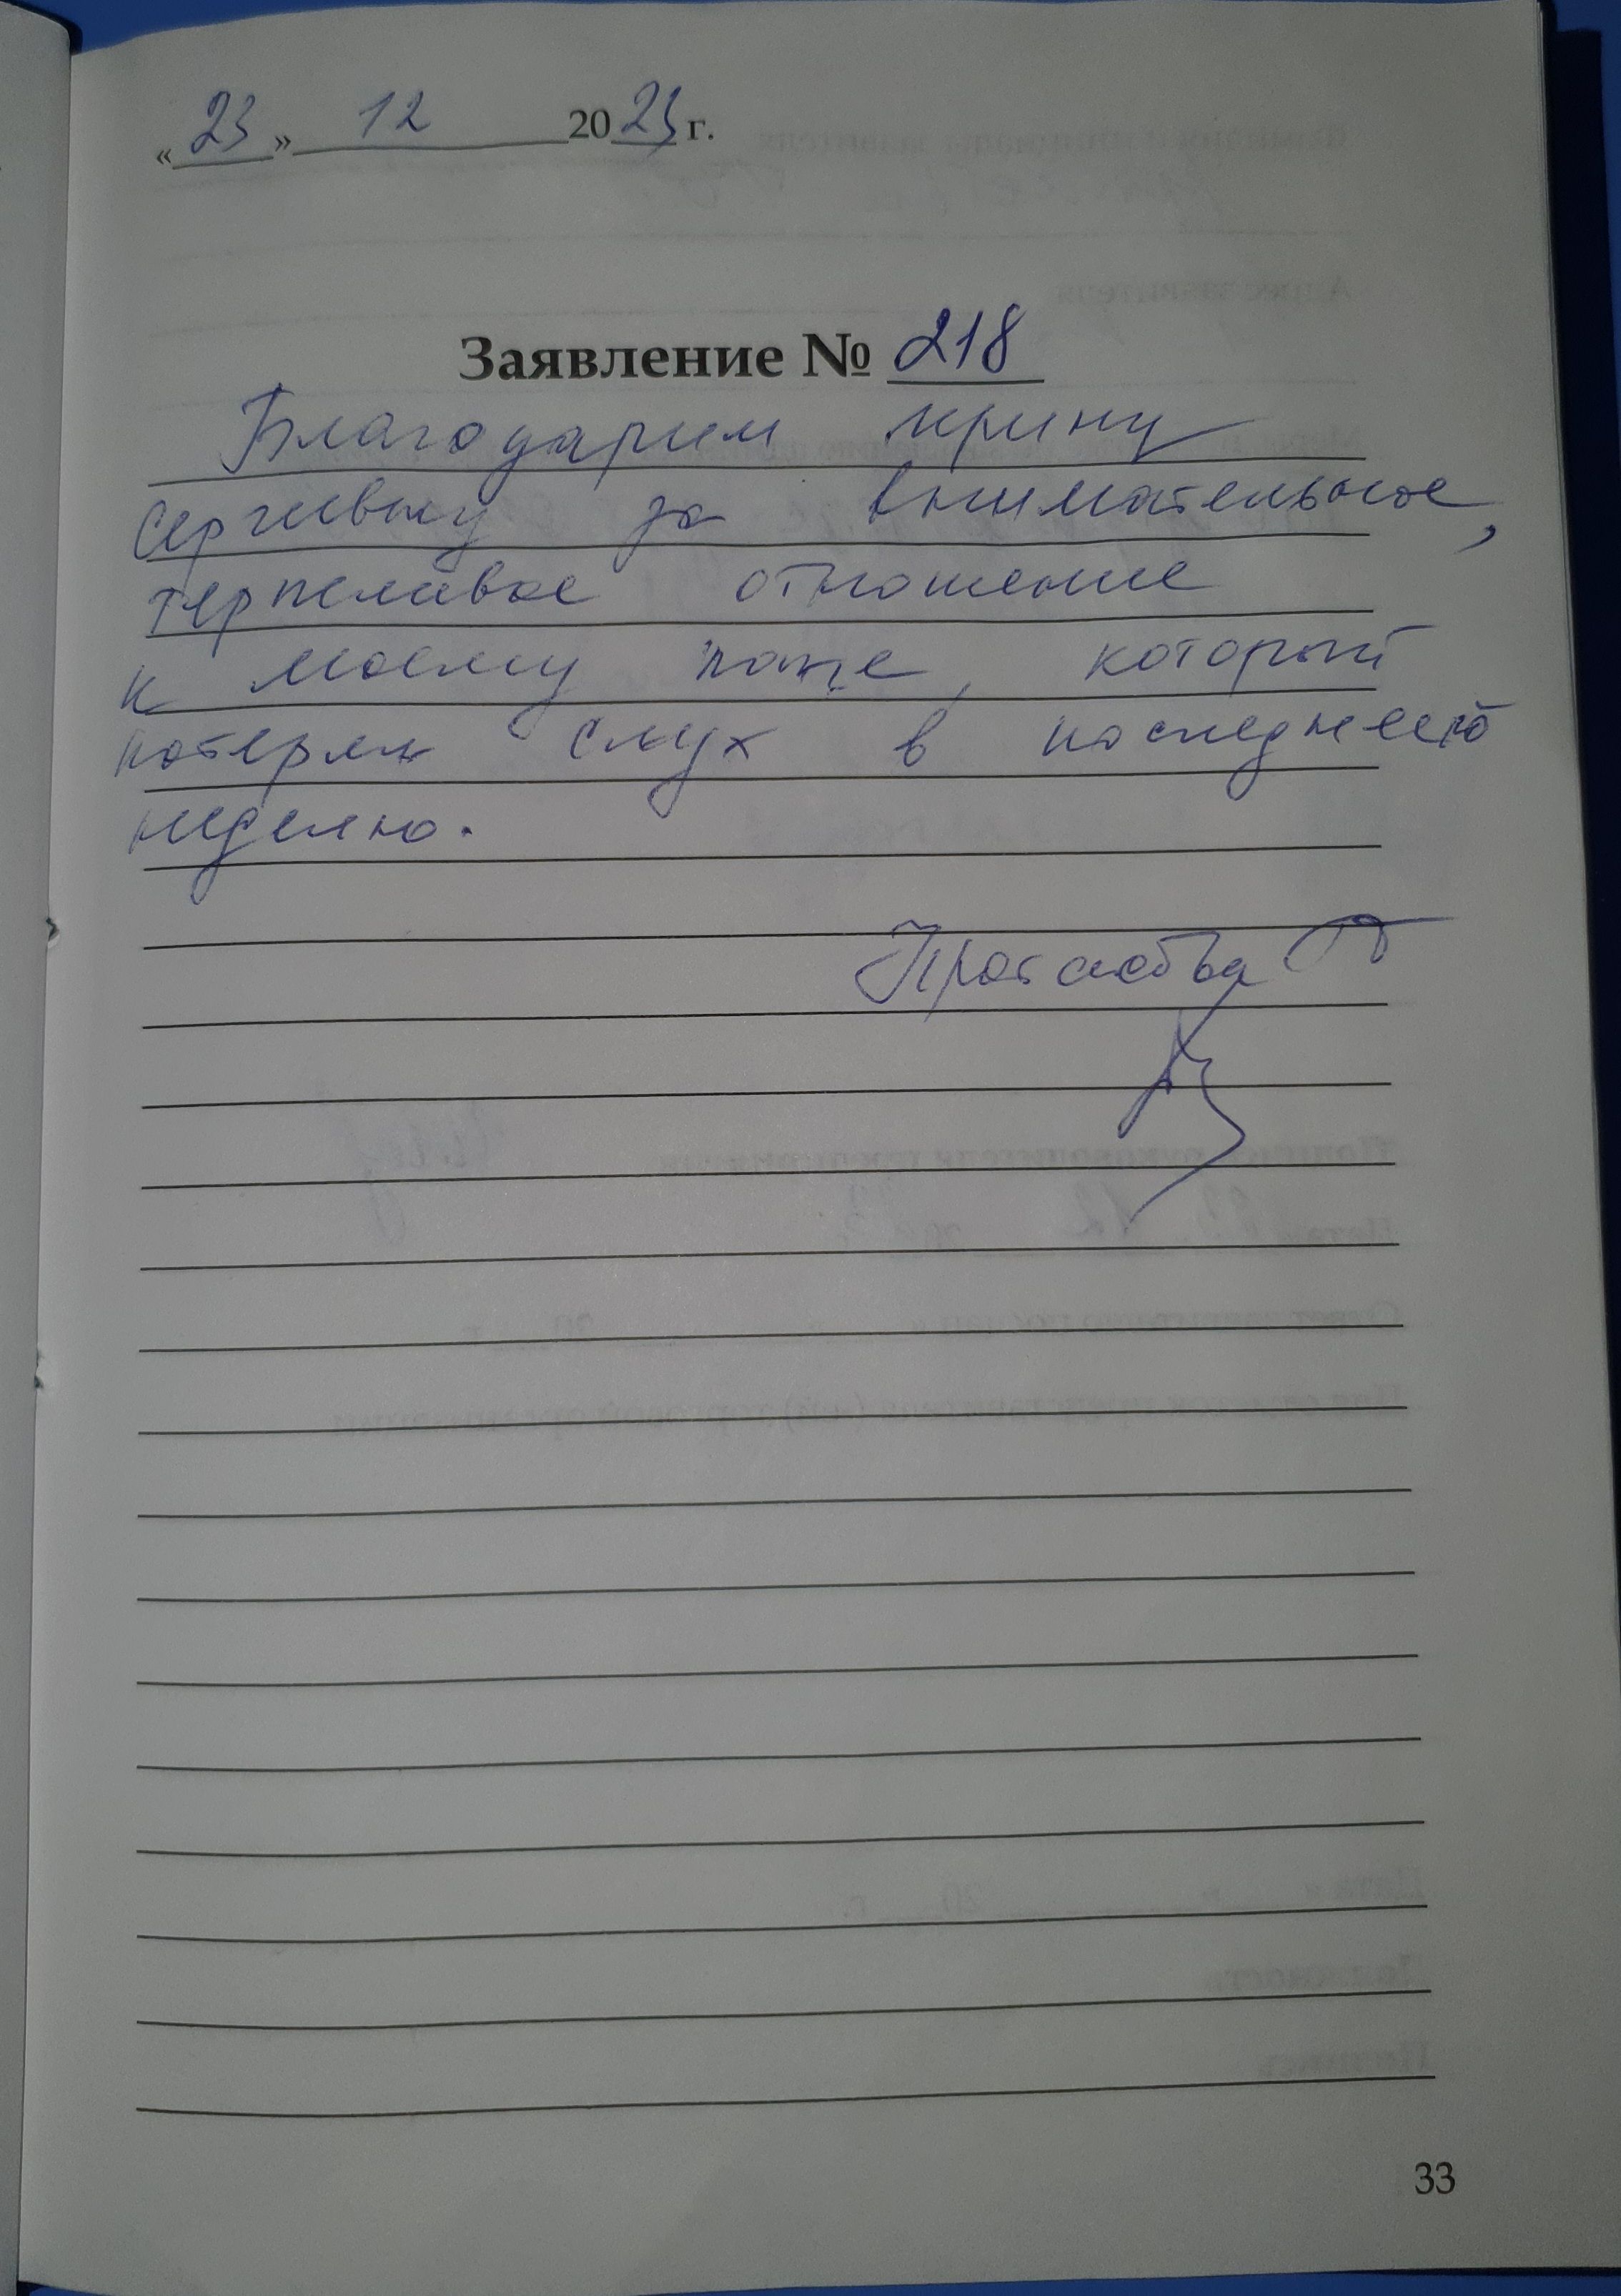 «23» 12 2023 г.
Заявление № 218
Благодарим Ирину
Сергеевну за внимательное,
терпеливое отношение
к моему папе, который
потерял слух в последнюю
неделю.
33